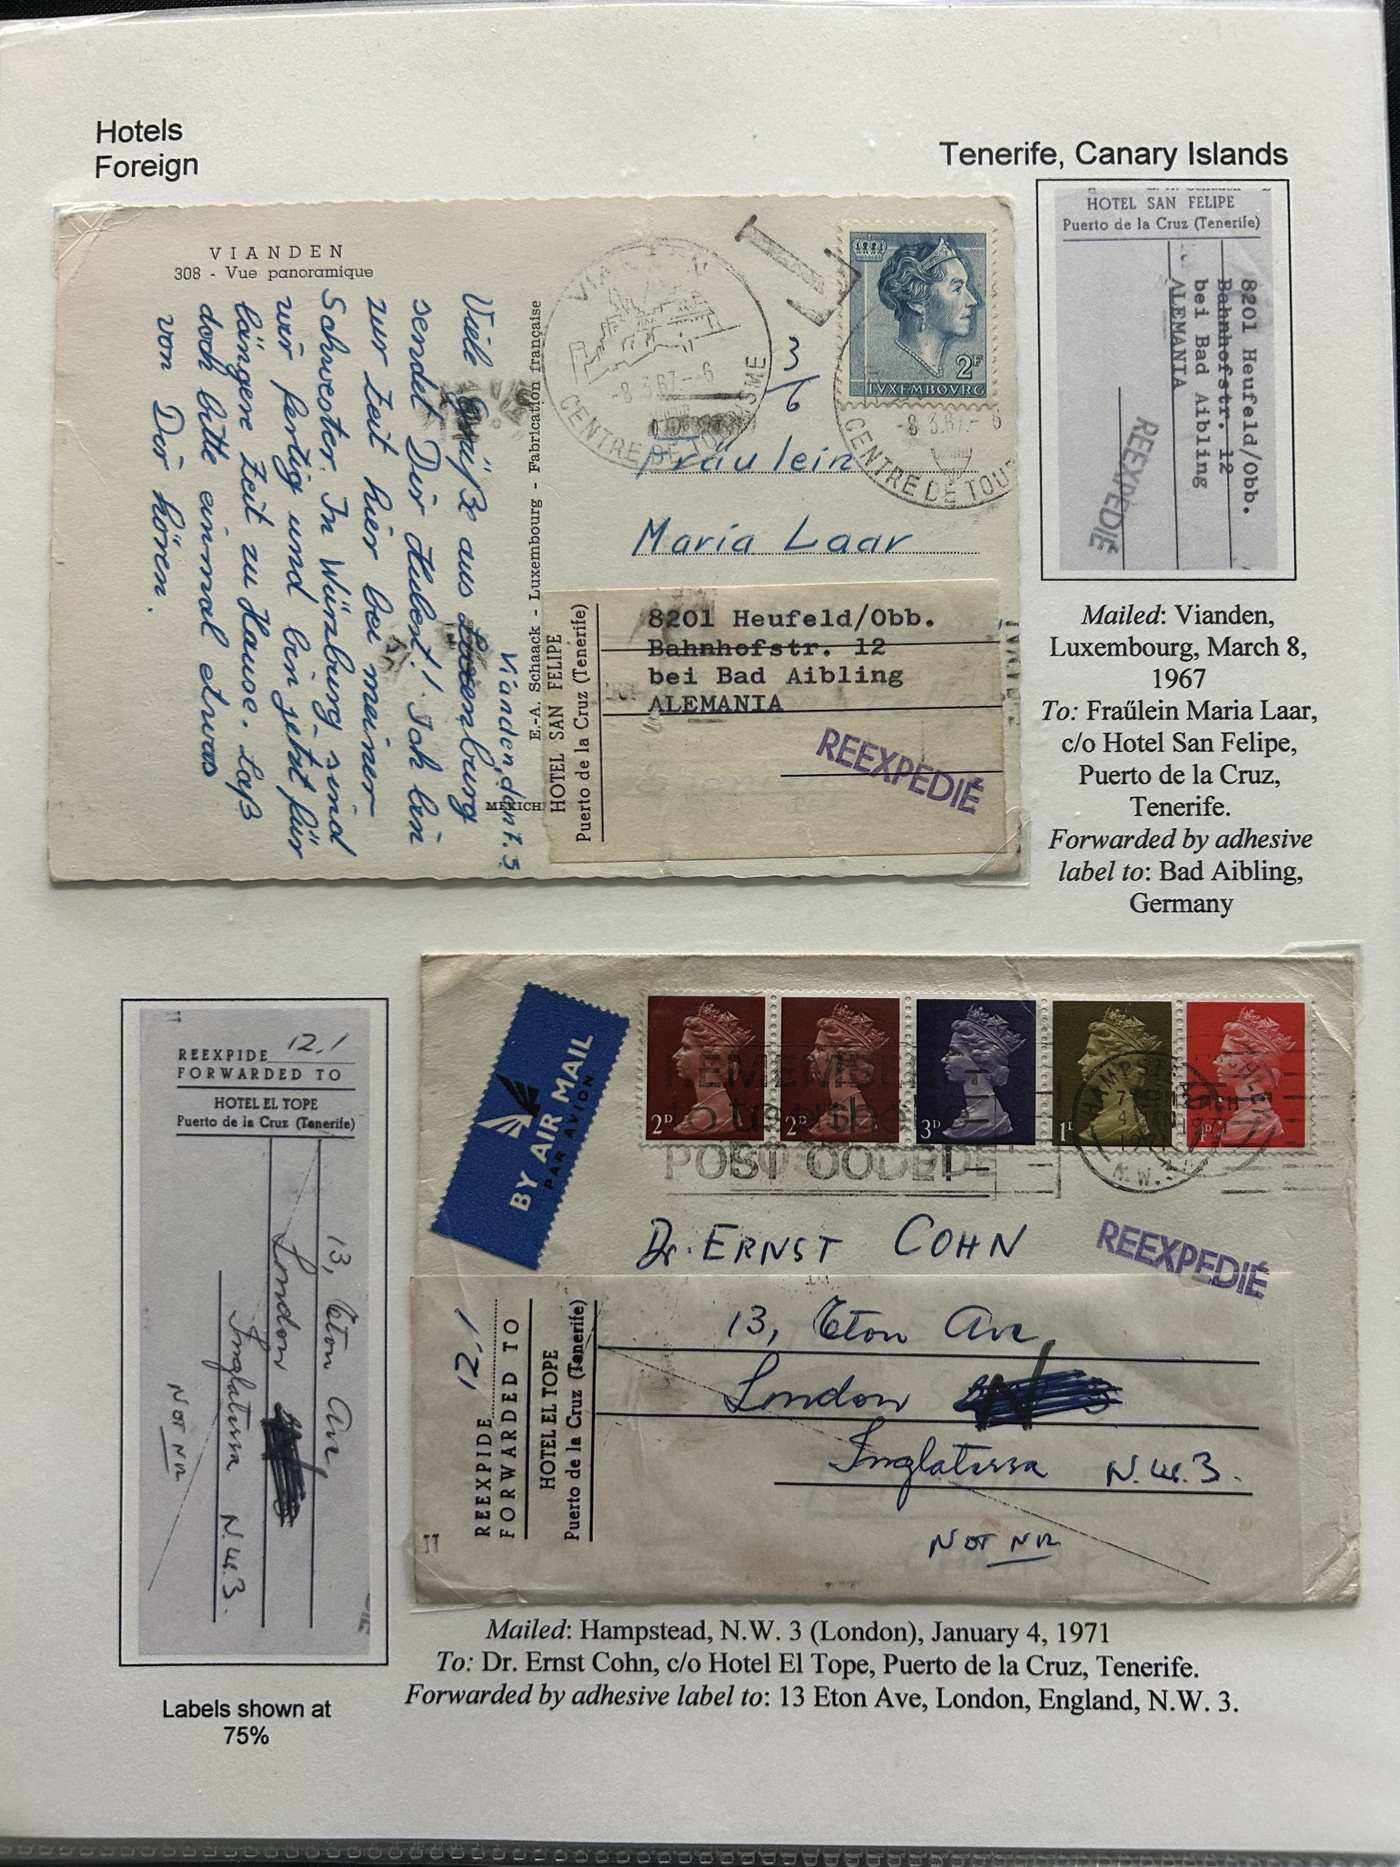 Hotels
Foreign
Tenerife, Canary Islands
VIANDEN
308 - Vue panoramique
Viele Grüße aus Luxemburg
sendet Dir Hubert! Ich bin
zur Zeit hier bei meiner
Schwester. In Würzburg sind
wir fertig und bin jetzt für
längere Zeit zu Hause. Laß
doch bitte einmal etwas
von Dir hören.
Vianden, d.
E.-A. Schaack - Luxembourg - Fabrication française
MEXICHR
VIANDEN
-8.3.67.-6
CENTRE DE TOURISME
T
3/6
2F
LUXEMBOURG
-8.3.67.-6
CENTRE DE TOU
Fräulein
Maria Laar
HOTEL SAN FELIPE
Puerto de la Cruz (Tenerife)
8201 Heufeld/Obb.
Bahnhofstr. 12
bei Bad Aibling
ALEMANIA
REEXPEDIÉ
HOTEL SAN FELIPE
Puerto de la Cruz (Tenerife)
8201 Heufeld/Obb.
Bahnhofstr. 12
bei Bad Aibling
ALEMANIA
REEXPEDIÉ
Mailed: Vianden,
Luxembourg, March 8,
1967
To: Fraűlein Maria Laar,
c/o Hotel San Felipe,
Puerto de la Cruz,
Tenerife.
Forwarded by adhesive
label to: Bad Aibling,
Germany
REEXPIDE 12.1
FORWARDED TO
HOTEL EL TOPE
Puerto de la Cruz (Tenerife)
13, Eton Ave,
London
Inglaterra N.W.3.
NOT NR
Labels shown at
75%
BY AIR MAIL
PAR AVION
2D
2D
3D
1D
4D
REMEMBER
to use the
POST CODE
HAMPSTEAD
N.W.3
Dr. ERNST COHN
REEXPEDIÉ
REEXPIDE 12.1
FORWARDED TO
HOTEL EL TOPE
Puerto de la Cruz (Tenerife)
13, Eton Ave,
London N
Inglaterra N.W.3.
NOT NR
Mailed: Hampstead, N.W. 3 (London), January 4, 1971
To: Dr. Ernst Cohn, c/o Hotel El Tope, Puerto de la Cruz, Tenerife.
Forwarded by adhesive label to: 13 Eton Ave, London, England, N.W. 3.